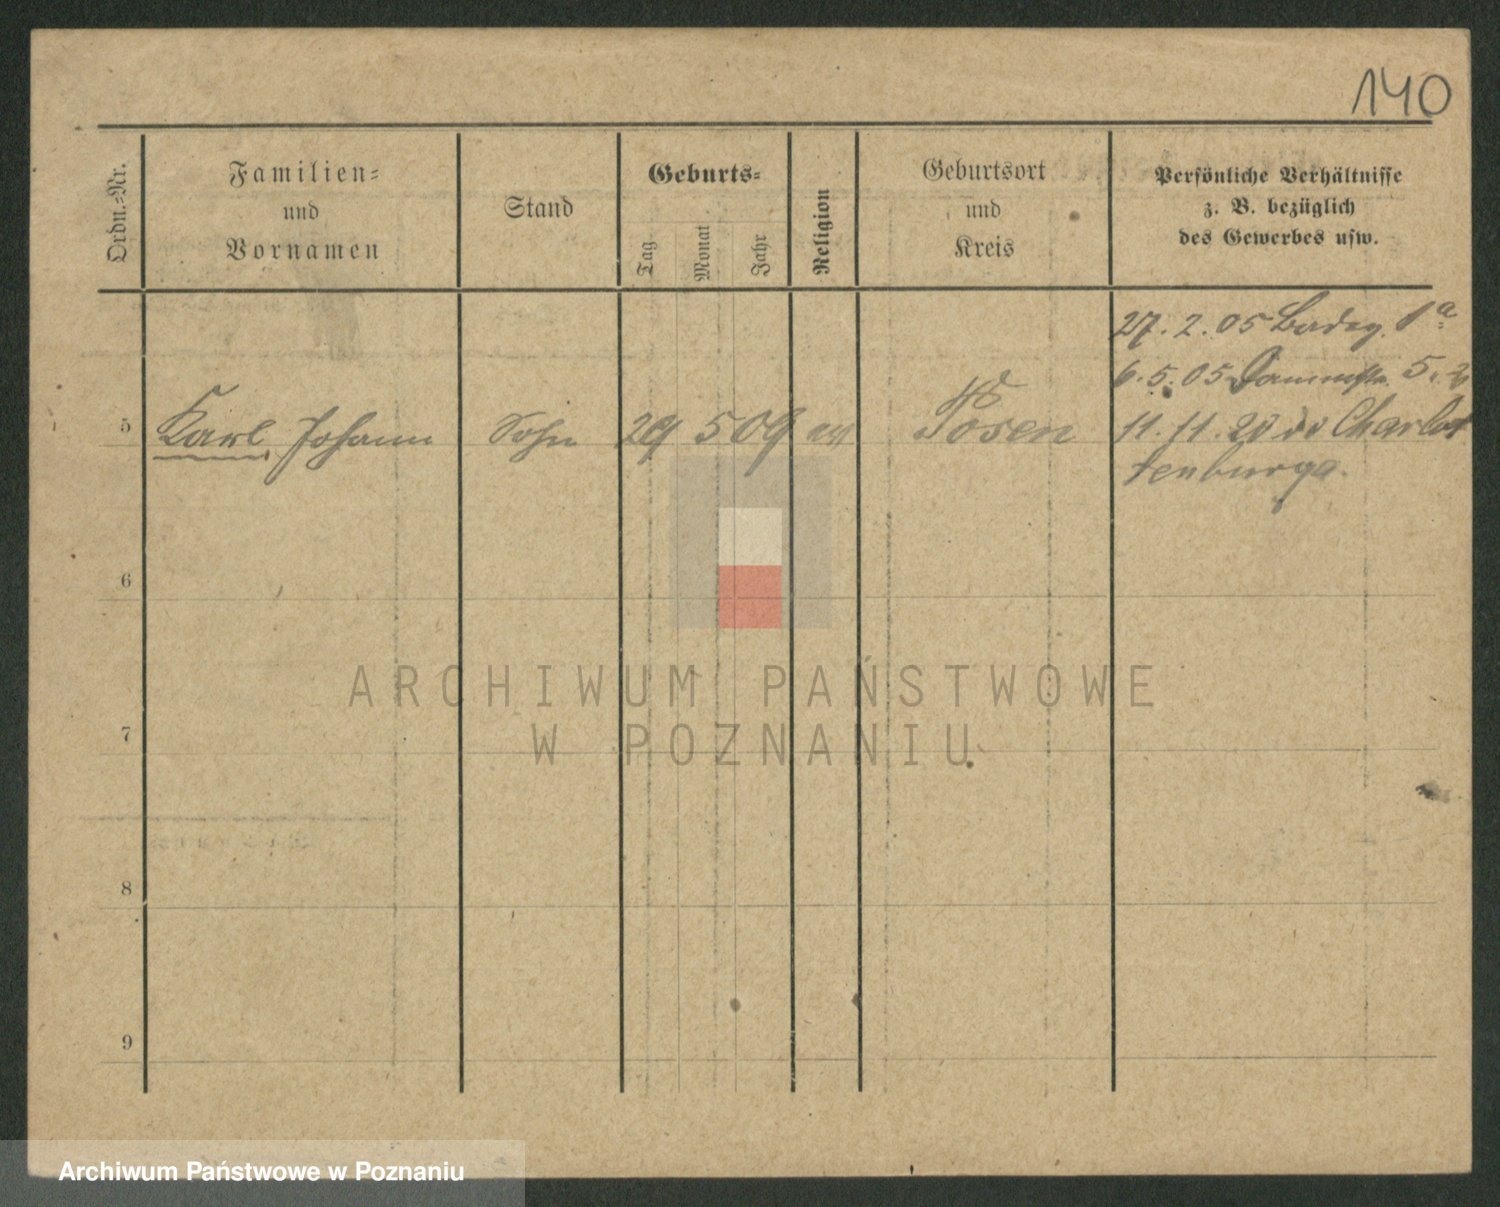 140
Ordn.-Nr.
Familien-
und
Vornamen
Stand
Geburts-
Tag
Monat
Jahr
Religion
Geburtsort
und
Kreis
Persönliche Verhältnisse
z. B. bezüglich
des Gewerbes usw.
27. 2. 05
6. 5. 05
5 Karl Johann Sohn 29 5 09 Posen 11. 11. 20 Charlot
tenburg
6
7
8
9
ARCHIWUM PAŃSTWOWE
W POZNANIU
Archiwum Państwowe w Poznaniu